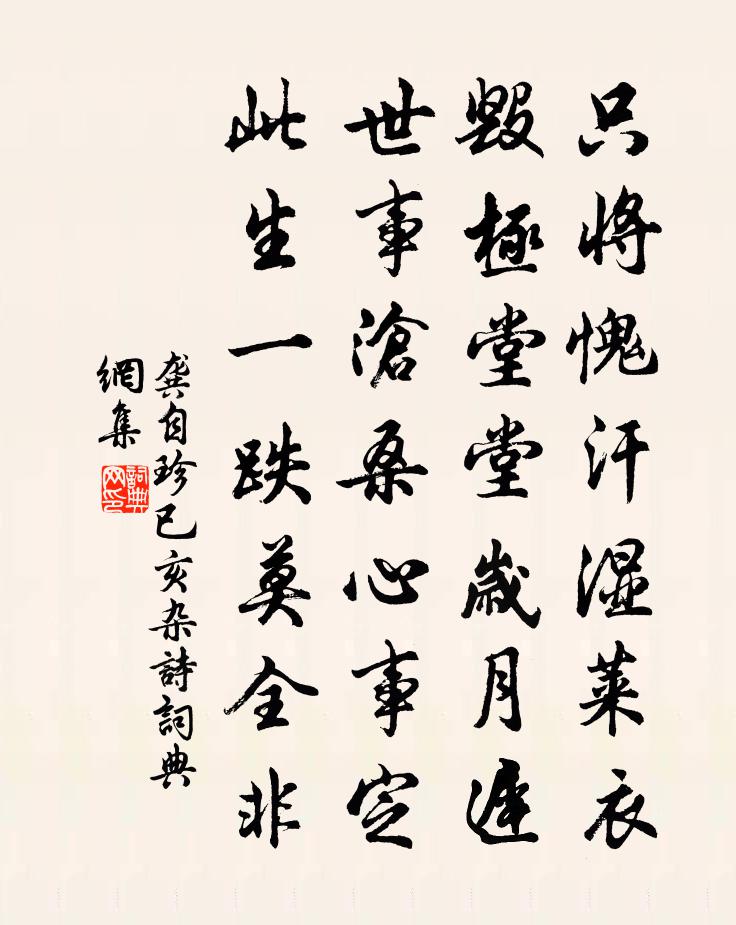 只將愧汗濕萊衣
毀極堂堂歲月遲
世事滄桑心事定
此生一跌莫全非
龔自珍己亥杂詩詞典
網集
詞典
网印